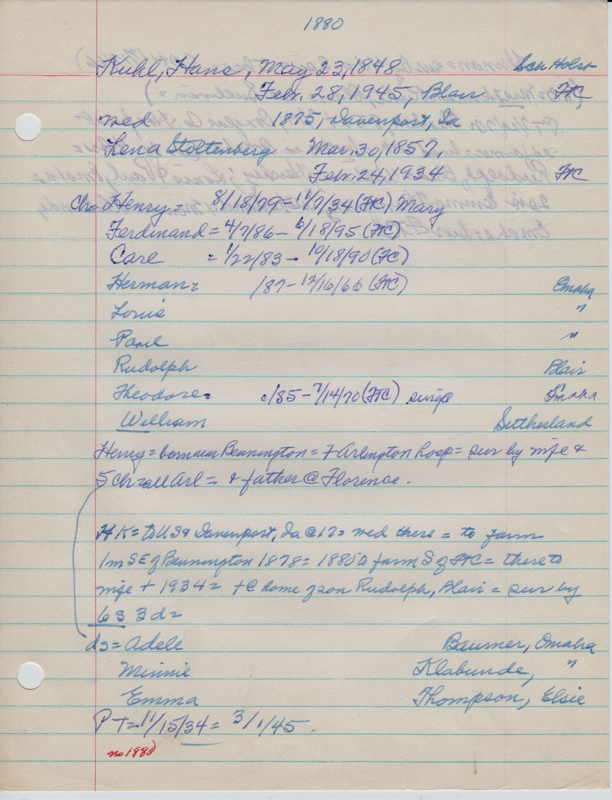 1880
Kuhl, Hans, May 23, 1848 Sch Holst
Feb. 28, 1945, Blair FtC
wed 1875, Davenport, Ia
Lena Stoltenberg Mar. 30, 1857,
Feb. 24, 1934 FtC
Ch= Henry = 8/18/79 - 11/7/34 (FtC) Mary
Ferdinand = 4/7/86 - 6/18/95 (FtC)
Carl = 1/22/83 - 10/18/90 (FtC)
Herman = /87 - 12/16/66 (FtC) Omaha
Louis "
Paul "
Rudolph Blair
Theodore = /85 - 7/14/70 (FtC) single Omaha
William Sutherland
Henry = born near Bennington = + Arlington hosp = sur by wife &
5 ch = all Arl = & father @ Florence.
HK = to US & Davenport, Ia @ 17 = wed there = to farm
1m SE of Bennington 1878 = 1880 to farm S of FtC = there to
wife + 1934 = + @ home of son Rudolph, Blair = sur by
6s 3d =
ds = Adele Baumer, Omaha
Minnie Klabunde, "
Emma Thompson, Elsie
PT = 11/15/34 = 3/1/45.
no 1880